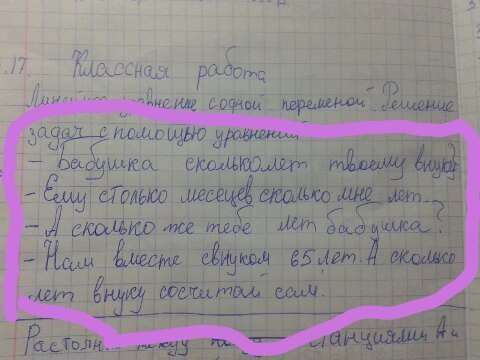 17. Классная работа
Линейное уравнение с одной переменой. Решение
задач с помощью уравнений
– Бабушка сколько лет твоему внуку?
– Ему столько месецев сколько мне лет.
– А сколько же тебе лет бабушка?
– Нам вместе свнуком 65 лет. А сколько
лет внуку сосчитай сам.
Растоян между А и